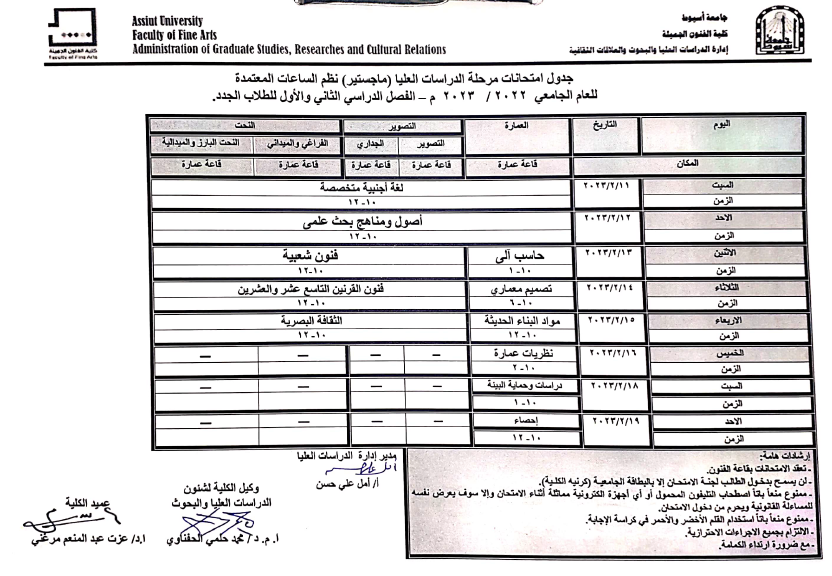 جامعة أسيوط
كلية الفنون الجميلة
إدارة الدراسات العليا والبحوث والعلاقات الثقافية
Assiut University
Faculty of Fine Arts
Administration of Graduate Studies, Researches and Cultural Relations
كلية الفنون الجميلة
Faculty of Fine Arts
جدول امتحانات مرحلة الدراسات العليا (ماجستير) نظم الساعات المعتمدة
للعام الجامعي ٢٠٢٢ / ٢٠٢٣ م – الفصل الدراسي الثاني والأول للطلاب الجدد.
اليوم التاريخ العمارة التصوير النحت
التصوير الجداري الفراغي والميداني النحت البارز والميدالية
المكان قاعة عمارة قاعة عمارة قاعة عمارة قاعة عمارة قاعة عمارة
السبت ٢٠٢٣/٢/١١ لغة أجنبية متخصصة
الزمن ١٠-١٢
الاحد ٢٠٢٣/٢/١٢ أصول ومناهج بحث علمى
الزمن ١٠-١٢
الاثنين ٢٠٢٣/٢/١٣ حاسب آلى فنون شعبية
الزمن ١٠-١ ١٠-١٢
الثلاثاء ٢٠٢٣/٢/١٤ تصميم معماري فنون القرنين التاسع عشر والعشرين
الزمن ١٠-٦ ١٠-١٢
الاربعاء ٢٠٢٣/٢/١٥ مواد البناء الحديثة الثقافة البصرية
الزمن ١٠-١٢ ١٠-١٢
الخميس ٢٠٢٣/٢/١٦ نظريات عمارة — — — —
الزمن ١٠-٢
السبت ٢٠٢٣/٢/١٨ دراسات وحماية البيئة — — — —
الزمن ١٠-١
الاحد ٢٠٢٣/٢/١٩ إحصاء — — — —
الزمن ١٠-١٢
إرشادات هامة:
- تعقد الامتحانات بقاعة الفنون.
- لن يسمح بدخول الطالب لجنة الامتحان إلا بالبطاقة الجامعية (كرنيه الكلية).
- ممنوع منعاً باتاً اصطحاب التليفون المحمول أو أي أجهزة الكترونية مماثلة أثناء الامتحان وإلا سوف يعرض نفسه
للمساءلة القانونية ويحرم من دخول الامتحان.
- ممنوع منعاً باتاً استخدام القلم الأخضر والأحمر في كراسة الإجابة.
- الالتزام بجميع الاجراءات الاحترازية.
- مع ضرورة ارتداء الكمامة.
مدير إدارة الدراسات العليا
أ/ أمل علي حسن
وكيل الكلية لشئون
الدراسات العليا والبحوث
أ.م.د/ محمد حلمي الحفناوي
عميد الكلية
ا.د/ عزت عبد المنعم مرغني